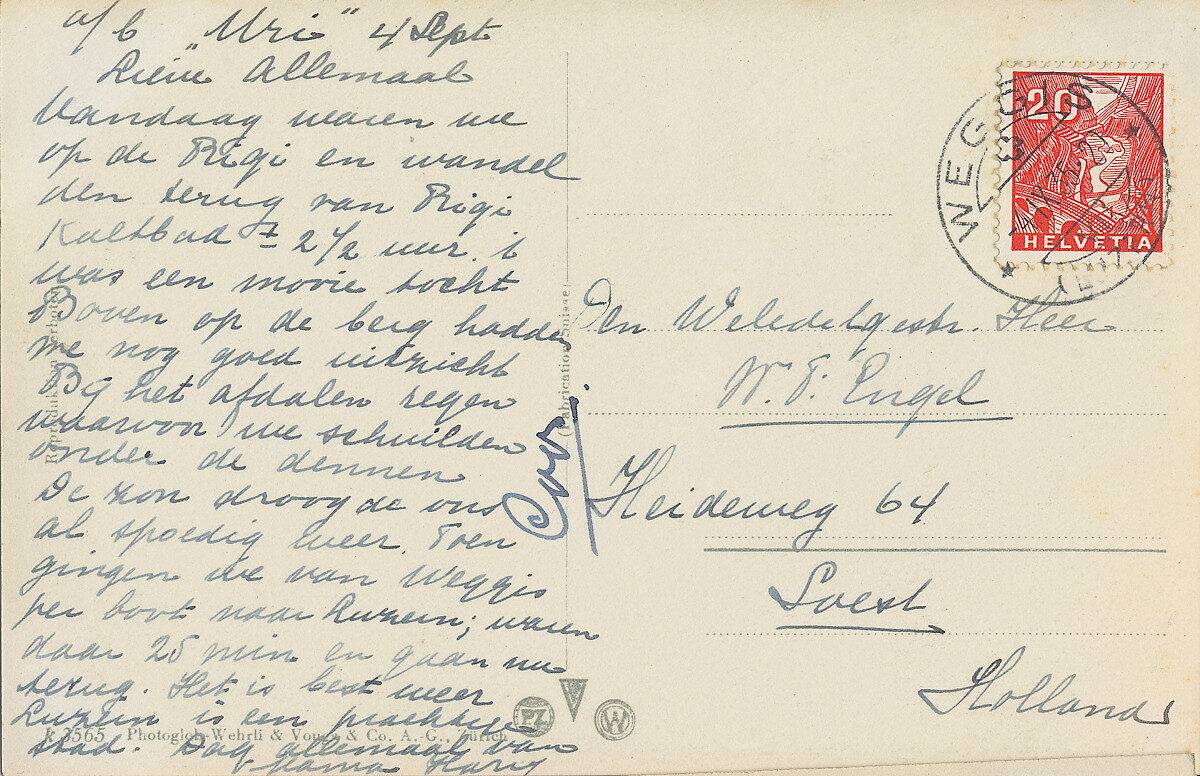 a/b "Uri" 4 Sept
Lieve Allemaal
Vandaag waren we
op de Rigi en wandel
den terug van Rigi
Kaltbad ± 2½ uur. 't
was een mooie tocht
Boven op de berg hadden
we nog goed uitzicht
Bij het afdalen regen
waarvoor we schuilden
onder de dennen
De zon droogde ons
al spoedig weer. Toen
gingen we van Weggis
per boot naar Luzern; waren
daar 25 min en gaan nu
terug. Het is best weer
Luzern is een prachtige
stad. Dag allemaal van
Mama Harry
Cor.
Reproduktion verboten
(Fabrication Suisse)
k 3565 Photogl. Wehrli & Vouga & Co. A.-G., Zürich
PZ
W
20
HELVETIA
WEGGIS
Den Weledelgestr. Heer
W. F. Engel
Heideweg 64
Soest
Holland